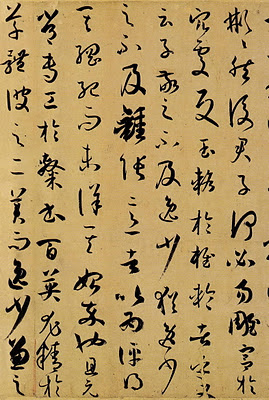 彬〻然後君子何必易雕宮於
穴處反玉輅於椎輪者乎又
云子敬之不及逸少猶逸少
之不及鍾張意者以為評得
其綱紀而未詳其始卒也且元
常專工於隸書百英尤精於
草體彼之二美而逸少兼之